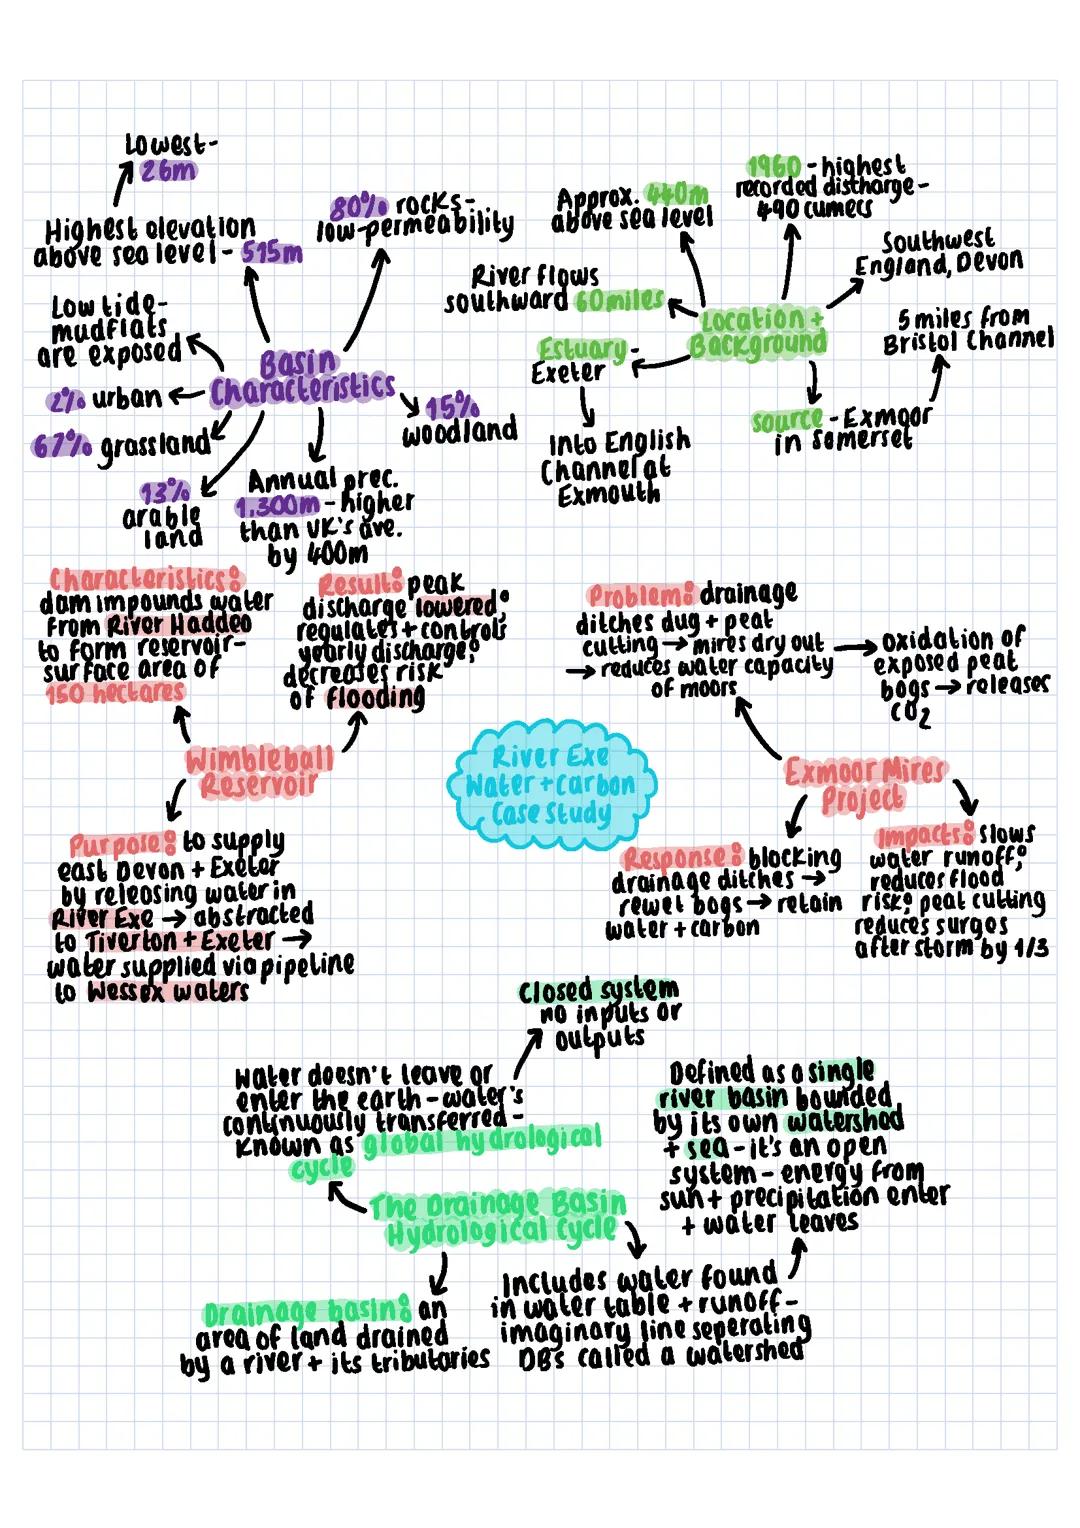 Lowest-
26m
Highest elevation
above sea level - 515m
80% rocks-
low-permeability
Low tide-
mudflats
are exposed
Basin
Characteristics
2% urban
67% grassland
13%
arable
land
Annual prec.
1,300m - higher
than UK's ave.
by 400m
15%
woodland
Approx. 440m
above sea level
1960 - highest
recorded distcharge -
490 cumecs
Southwest
England, Devon
River flows
southward 60miles
Location +
Background
5 miles from
Bristol Channel
Estuary -
Exeter
Into English
Channel at
Exmouth
source - Exmoor
in Somerset
Characteristics:
dam impounds water
from River Haddeo
to form reservoir-
surface area of
150 hectares
Result: peak
discharge lowered;
regulates + controls
yearly discharge;
decreases risk
of flooding
Wimbleball
Reservoir
Purpose: to supply
east Devon + Exeter
by releasing water in
River Exe → abstracted
to Tiverton + Exeter →
water supplied via pipeline
to Wessex waters
River Exe
Water + Carbon
Case Study
Problem: drainage
ditches dug + peat
cutting → mires dry out
→ reduces water capacity
of moors
→ oxidation of
exposed peat
bogs → releases
CO2
Exmoor Mires
Project
Response: blocking
drainage ditches →
rewet bogs → retain
water + carbon
Impacts: slows
water runoff;
reduces flood
risk; peat cutting
reduces surges
after storm by 1/3
Closed system
no inputs or
outputs
Water doesn't leave or
enter the earth - water's
continuously transferred -
known as global hydrological
cycle
The Drainage Basin
Hydrological Cycle
Drainage basin: an
area of land drained
by a river + its tributaries
Includes water found
in water table + runoff -
imaginary line seperating
DBs called a watershed
Defined as a single
river basin bounded
by its own watershed
+ sea - it's an open
system - energy from
sun + precipitation enter
+ water leaves